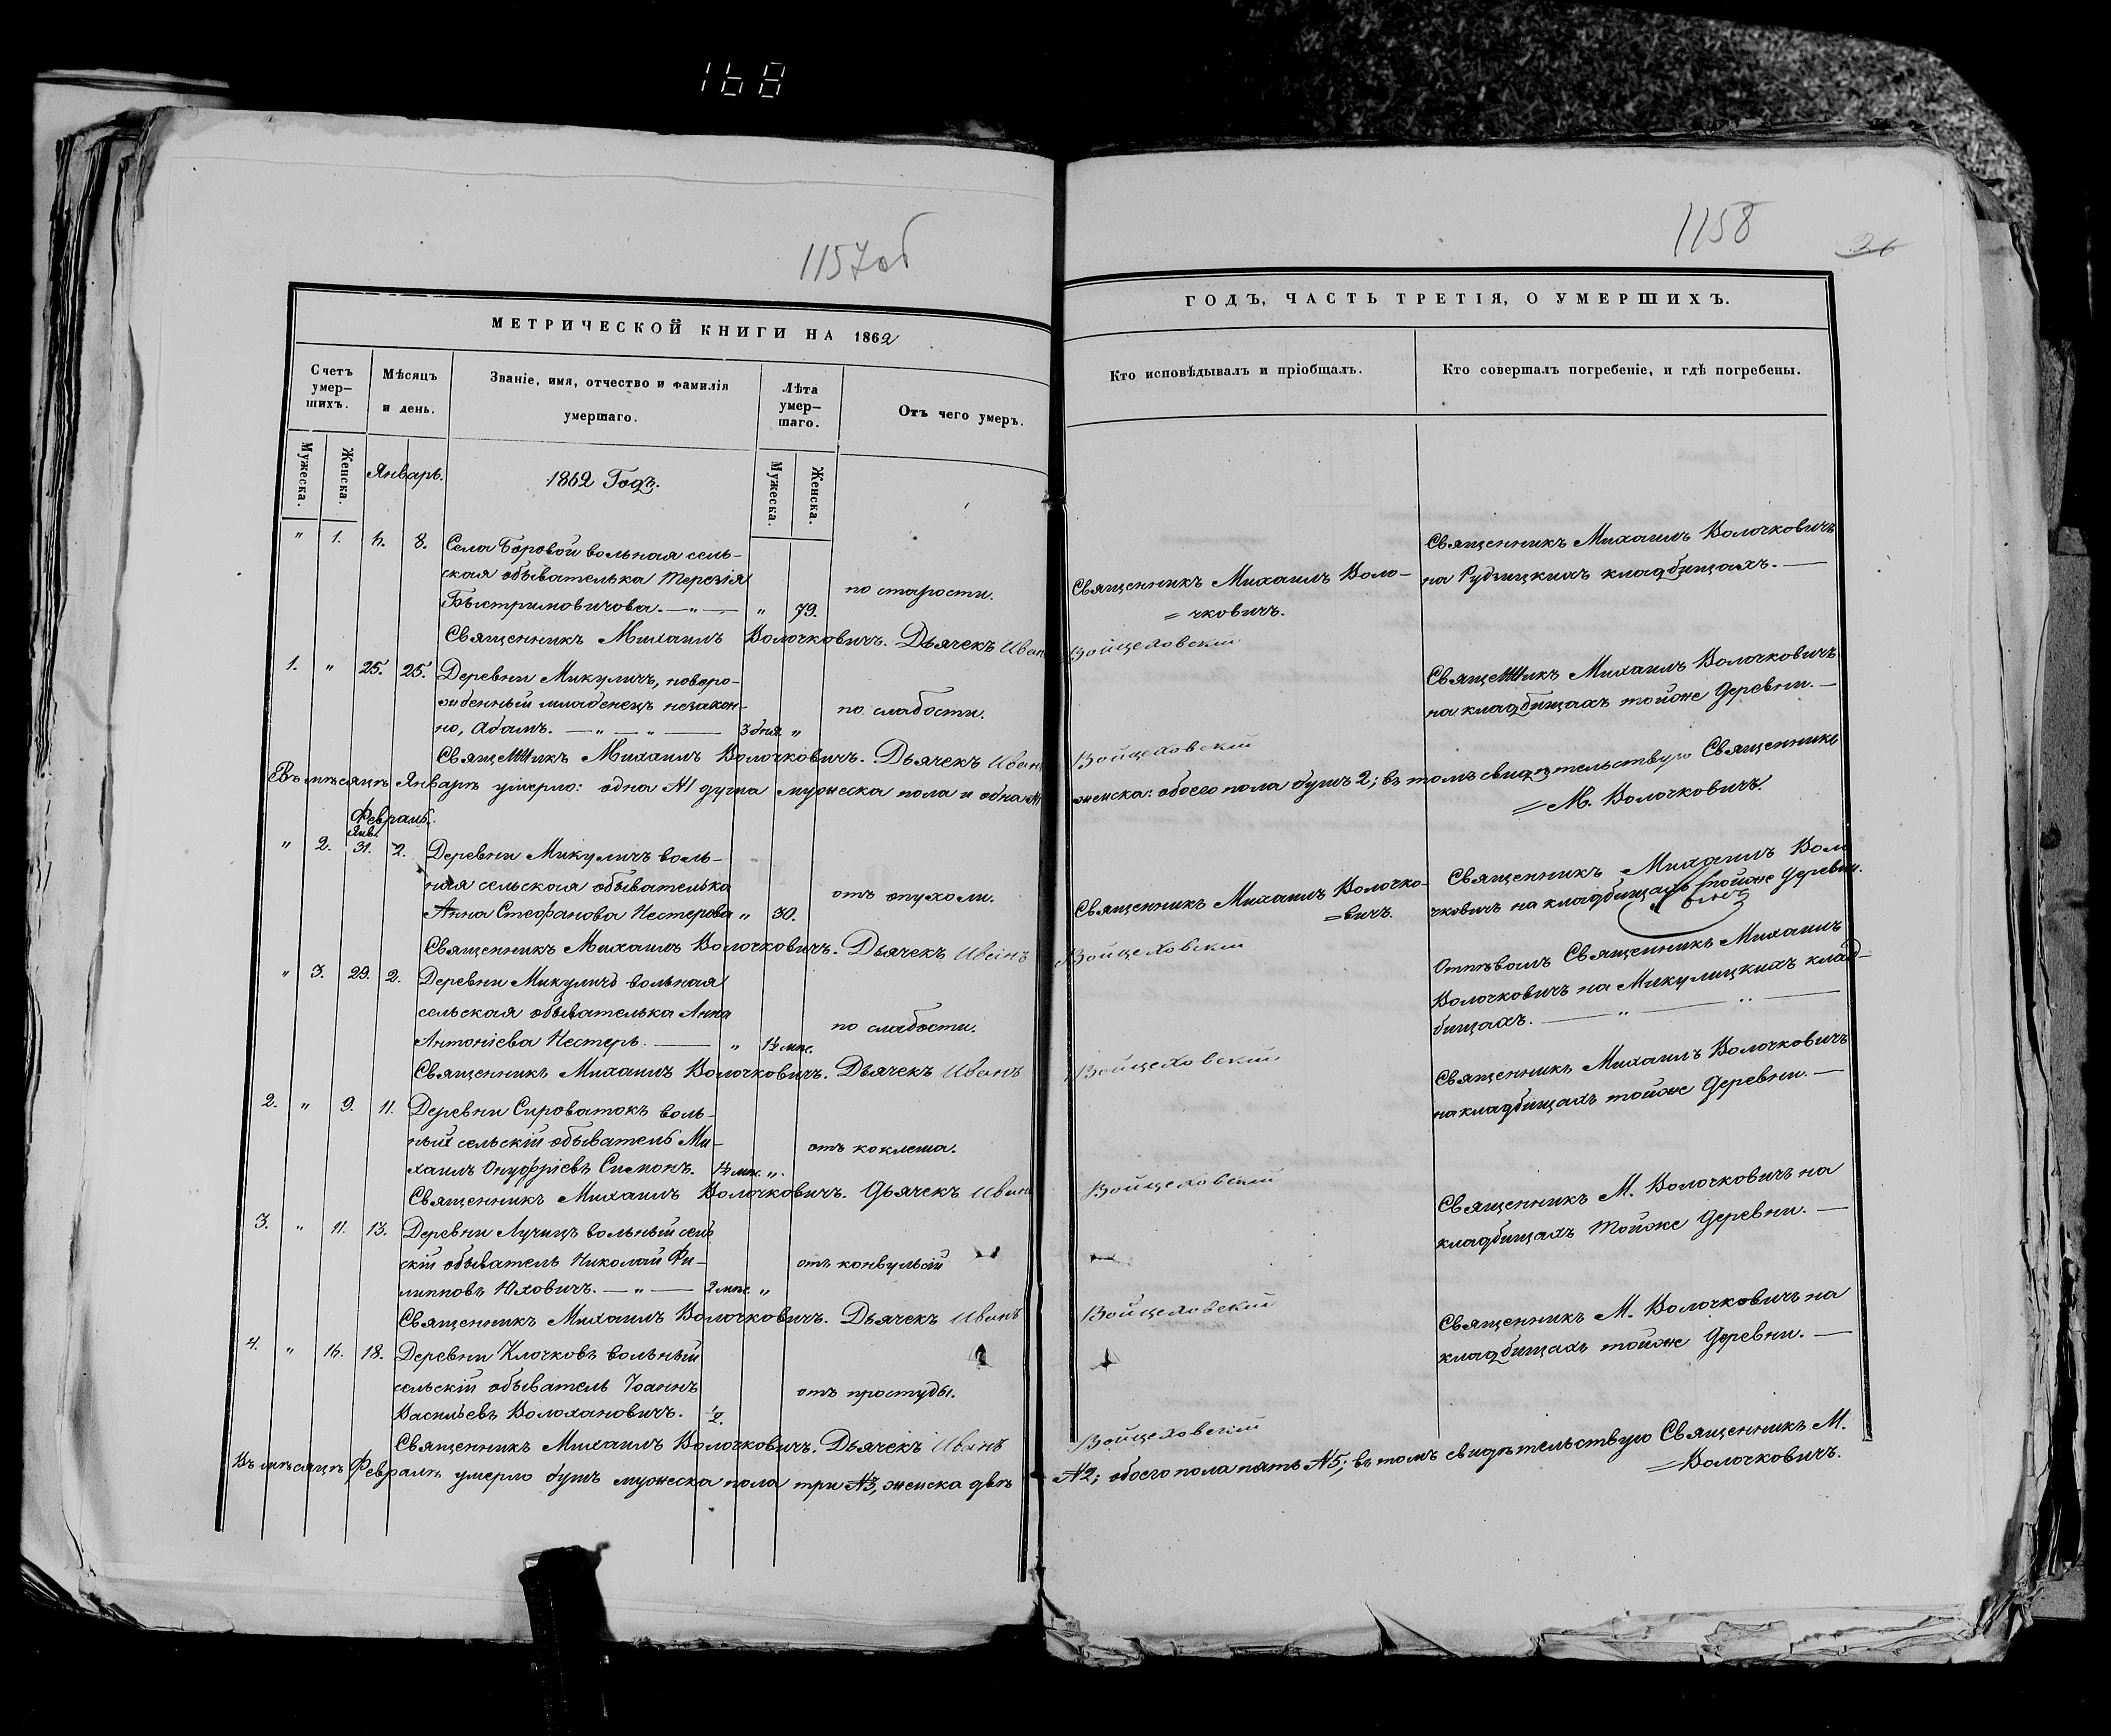 168
1157об
МЕТРИЧЕСКОЙ КНИГИ НА 1862
Счетъ умер-
шихъ.
Мѣсяцъ
и день.
Званіе, имя, отчество и фамилія
умершаго.
Лѣта
умер-
шаго.
Отъ чего умеръ.
Мужеска.
Женска.
Январь.
1862 Годъ.
Мужеска.
Женска.
" 1. 8. Села Боровой вольная сель-
ская обывателька Терезія
Быстримовичова. — " — " 79.
по старости.
Священникъ Михаилъ Волочковичъ. Дьячекъ Иванъ
1. " 25. 25. Деревни Микуличъ, новоро-
жденный младенецъ незакон-
но, Адамъ. — " — " — 3 дня. "
по слабости.
Священникъ Михаилъ Волочковичъ. Дьячекъ Иванъ
Въ мѣсяцѣ Январѣ умерло: одна №1 душа мужеска пола и одна №1
Февраль.
Янв.
" 2. 31. 2. Деревни Микуличъ воль-
ная сельская обывателька
Анна Стефанова Нестерова " 30.
отъ опухоли.
Священникъ Михаилъ Волочковичъ. Дьячекъ Иванъ
" 3. 29. 2. Деревни Микуличъ вольная
сельская обывателька Анна
Антоніева Нестеръ. — " 1½ мѣс.
по слабости.
Священникъ Михаилъ Волочковичъ. Дьячекъ Иванъ
2. " 9. 11. Деревни Сироватокъ воль-
ный сельскій обыватель Ми-
хаилъ Онуфріевъ Симонъ. 1½ мѣс. ".
отъ коклюша.
Священникъ Михаилъ Волочковичъ. Дьячекъ Иванъ
3. " 11. 13. Деревни Лучицъ вольный сель
скій обыватель Николай Фи-
липповъ Юховичъ. — " — 2 мѣс. "
отъ конвульсій
Священникъ Михаилъ Волочковичъ. Дьячекъ Иванъ
4. " 16. 18. Деревни Клочковъ вольный
сельскій обыватель Іоаннъ
Васильевъ Волохановичъ.
отъ простуды.
Священникъ Михаилъ Волочковичъ. Дьячекъ Иванъ
Въ мѣсяцѣ Февралѣ умерло душъ мужеска пола три №3, женска двѣ
1158
ГОДЪ, ЧАСТЬ ТРЕТІЯ, О УМЕРШИХЪ.
Кто исповѣдывалъ и пріобщалъ.
Кто совершалъ погребеніе, и гдѣ погребены.
Священникъ Михаилъ Воло-
= чковичъ.
Священникъ Михаилъ Волочковичъ
на Рудницкихъ кладбищахъ. —
Войцеховскій
Священникъ Михаилъ Волочковичъ
на кладбищахъ тойже деревни. —
Войцеховскій
женска: обоего пола душъ 2; въ томъ свидѣтельствую Священникъ
= М. Волочковичъ.
Священникъ Михаилъ Волочко-
=вичъ.
Священникъ Михаилъ Воло
чковичъ на кладбищахъ тойже деревни.
Войцеховскій
Отпѣвалъ Священникъ Михаилъ
Волочковичъ на Микулицкихъ клад-
бищахъ. — " — " —
Войцеховскій
Священникъ Михаилъ Волочковичъ
на кладбищахъ тойже деревни. —
Войцеховскій
Священникъ М. Волочковичъ на
кладбищахъ тойже деревни. —
Войцеховскій
Священникъ М. Волочковичъ на
кладбищахъ тойже деревни. —
Войцеховскій
№2; обоего пола пять №5; въ томъ свидѣтельствую Священникъ М.
=Волочковичъ.